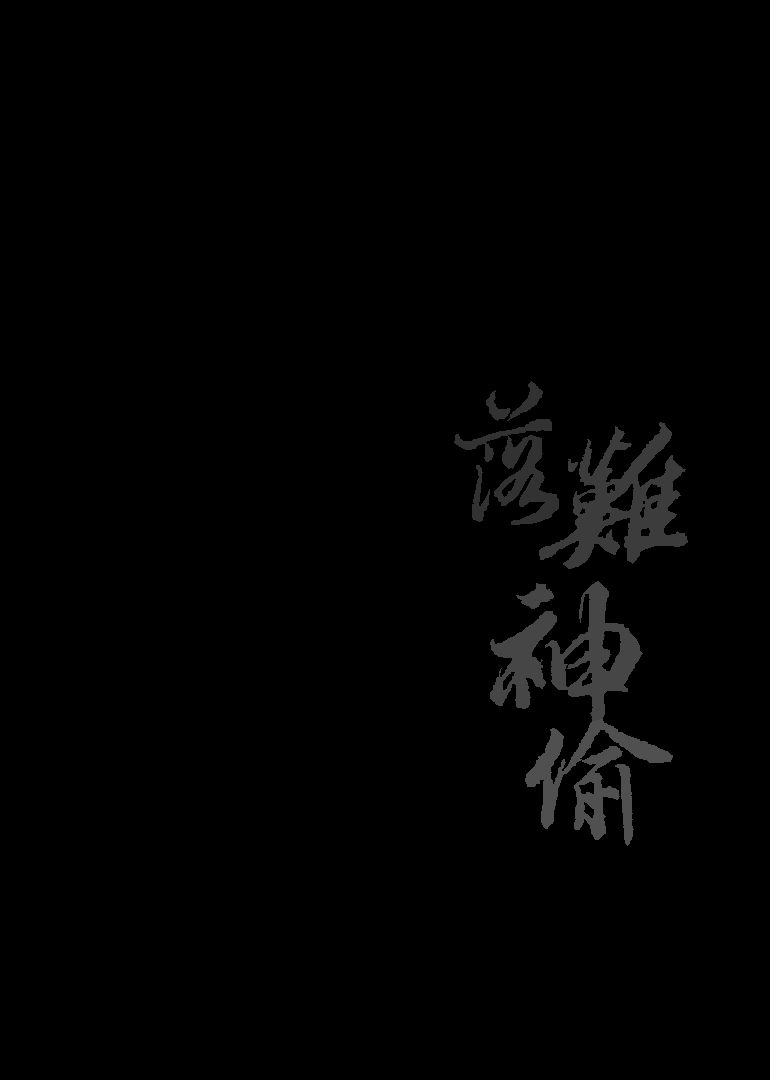 落難神偷